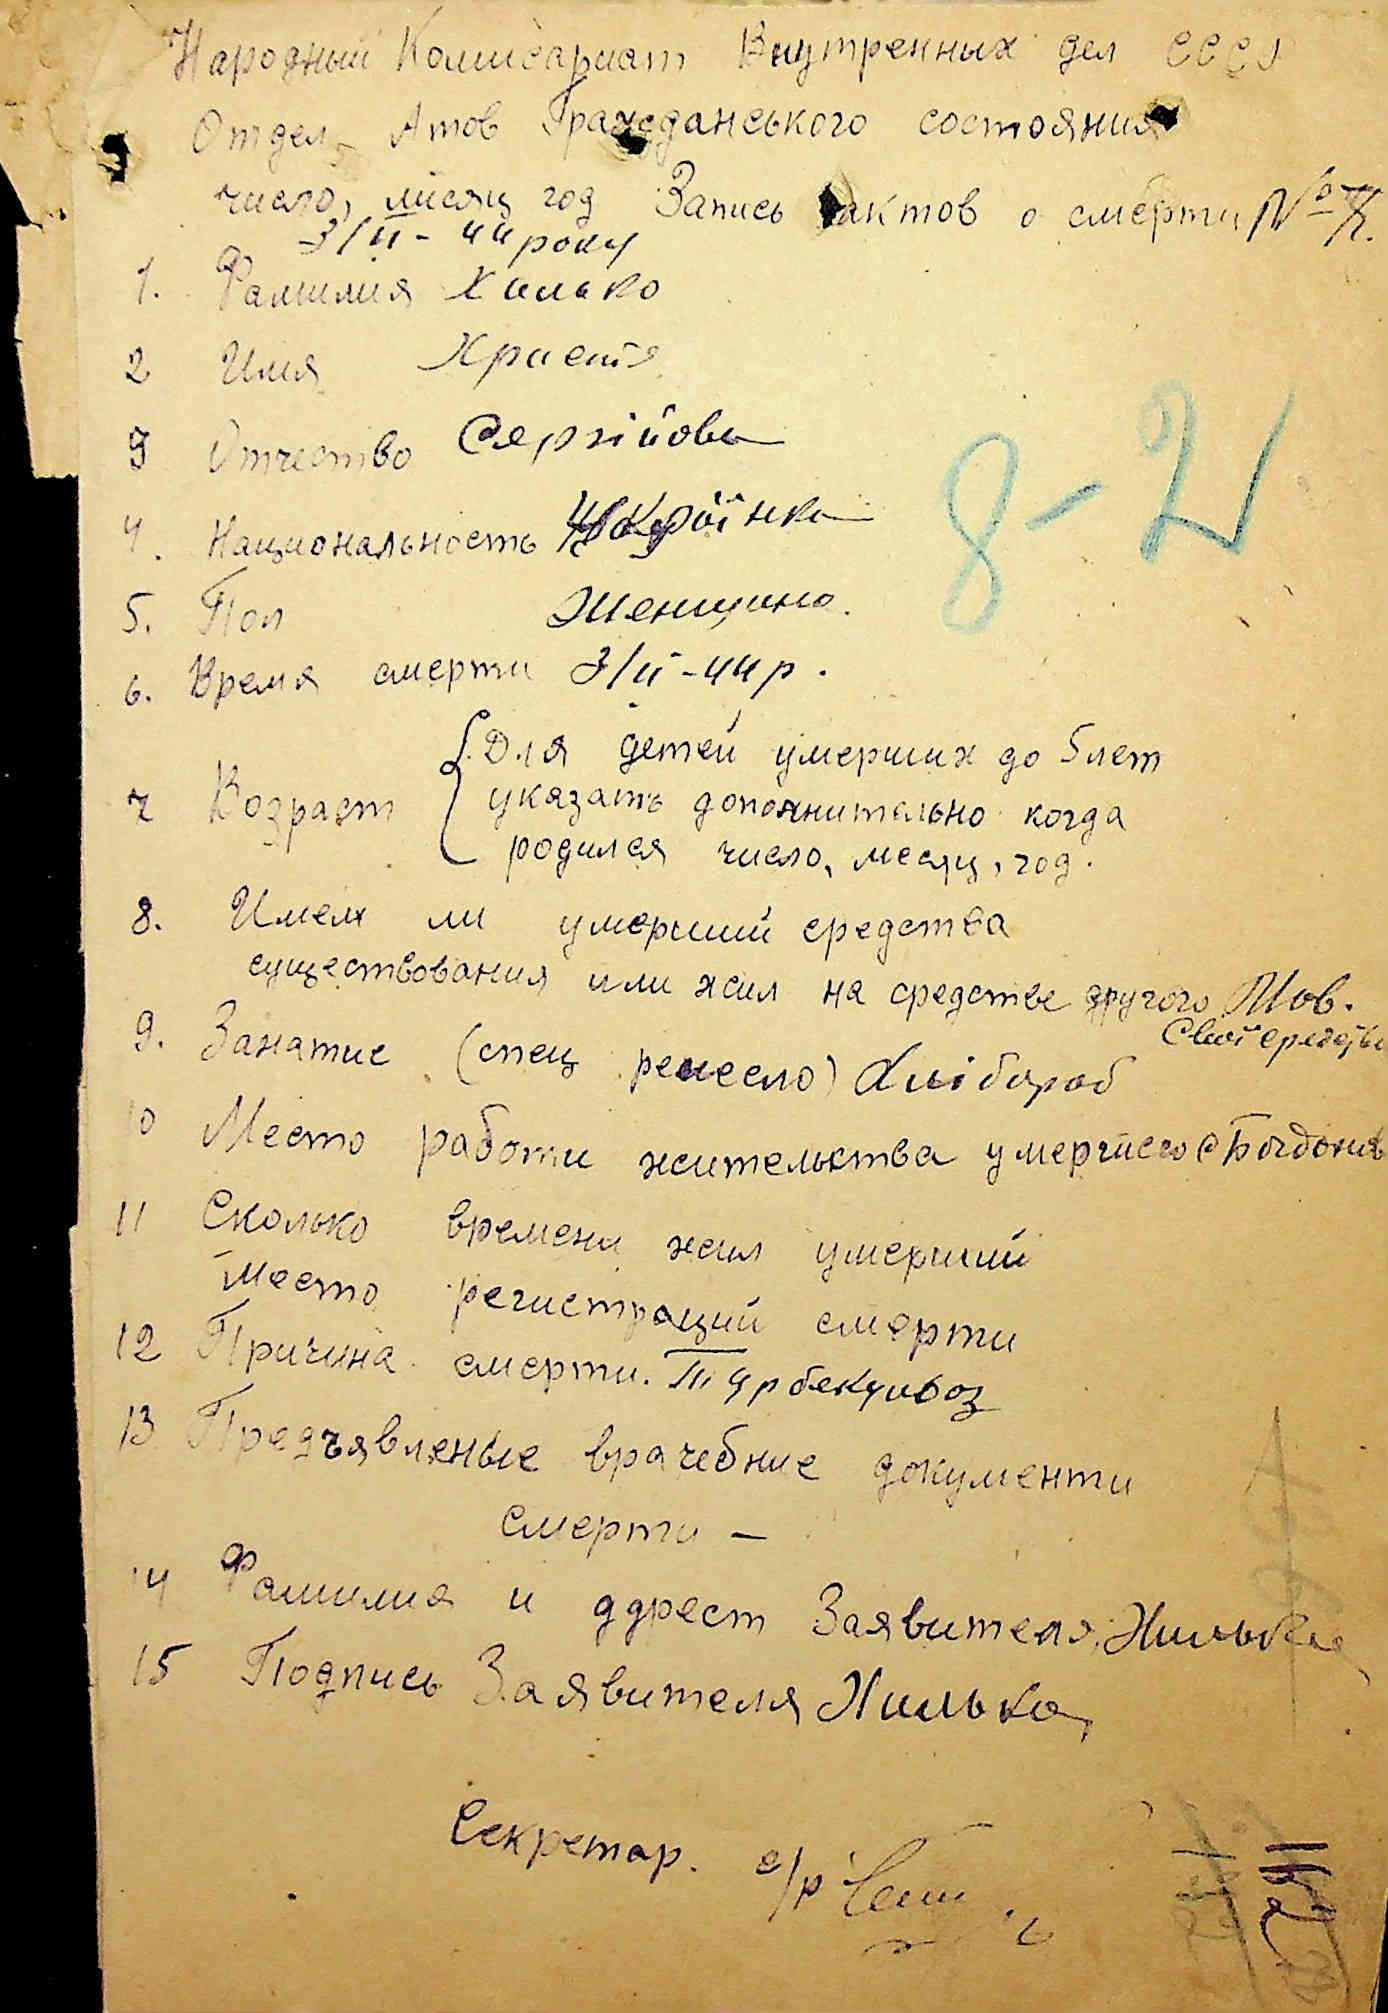 Народный Комисариат Внутренных дел СССР
Отдел Атов Гражданського состояния
число, мисяц год Запись актов о смерти №
3/II - 44 року
1. Фамилия Хилько
2 Имя Христя
3 Отчество Сергіївна
4. Национальность Українка
5. Пол Женщина.
6. Время смерти 3/II - 44 р.
7 Возраст { Для детей умерших до 5 лет
указать допоянительно когда
родился число, месяц, год.
8. Имел ли умерший средства
существования или жил на средстве другого
Свої средства
9. Занатие (спец ремесло) Хлібороб
10 Место работи жительктва умершего с Богданів
11 Сколько времени жил умерший
место регистраций смерти
12 Причина смерти. Турбекульоз
13 Предъявленые врачебние документи
смерти —
14 Фамилия и ддрест Заявителя Хилько
15 Подпись Заявителя Хилько
Секретар. с/р
8-2